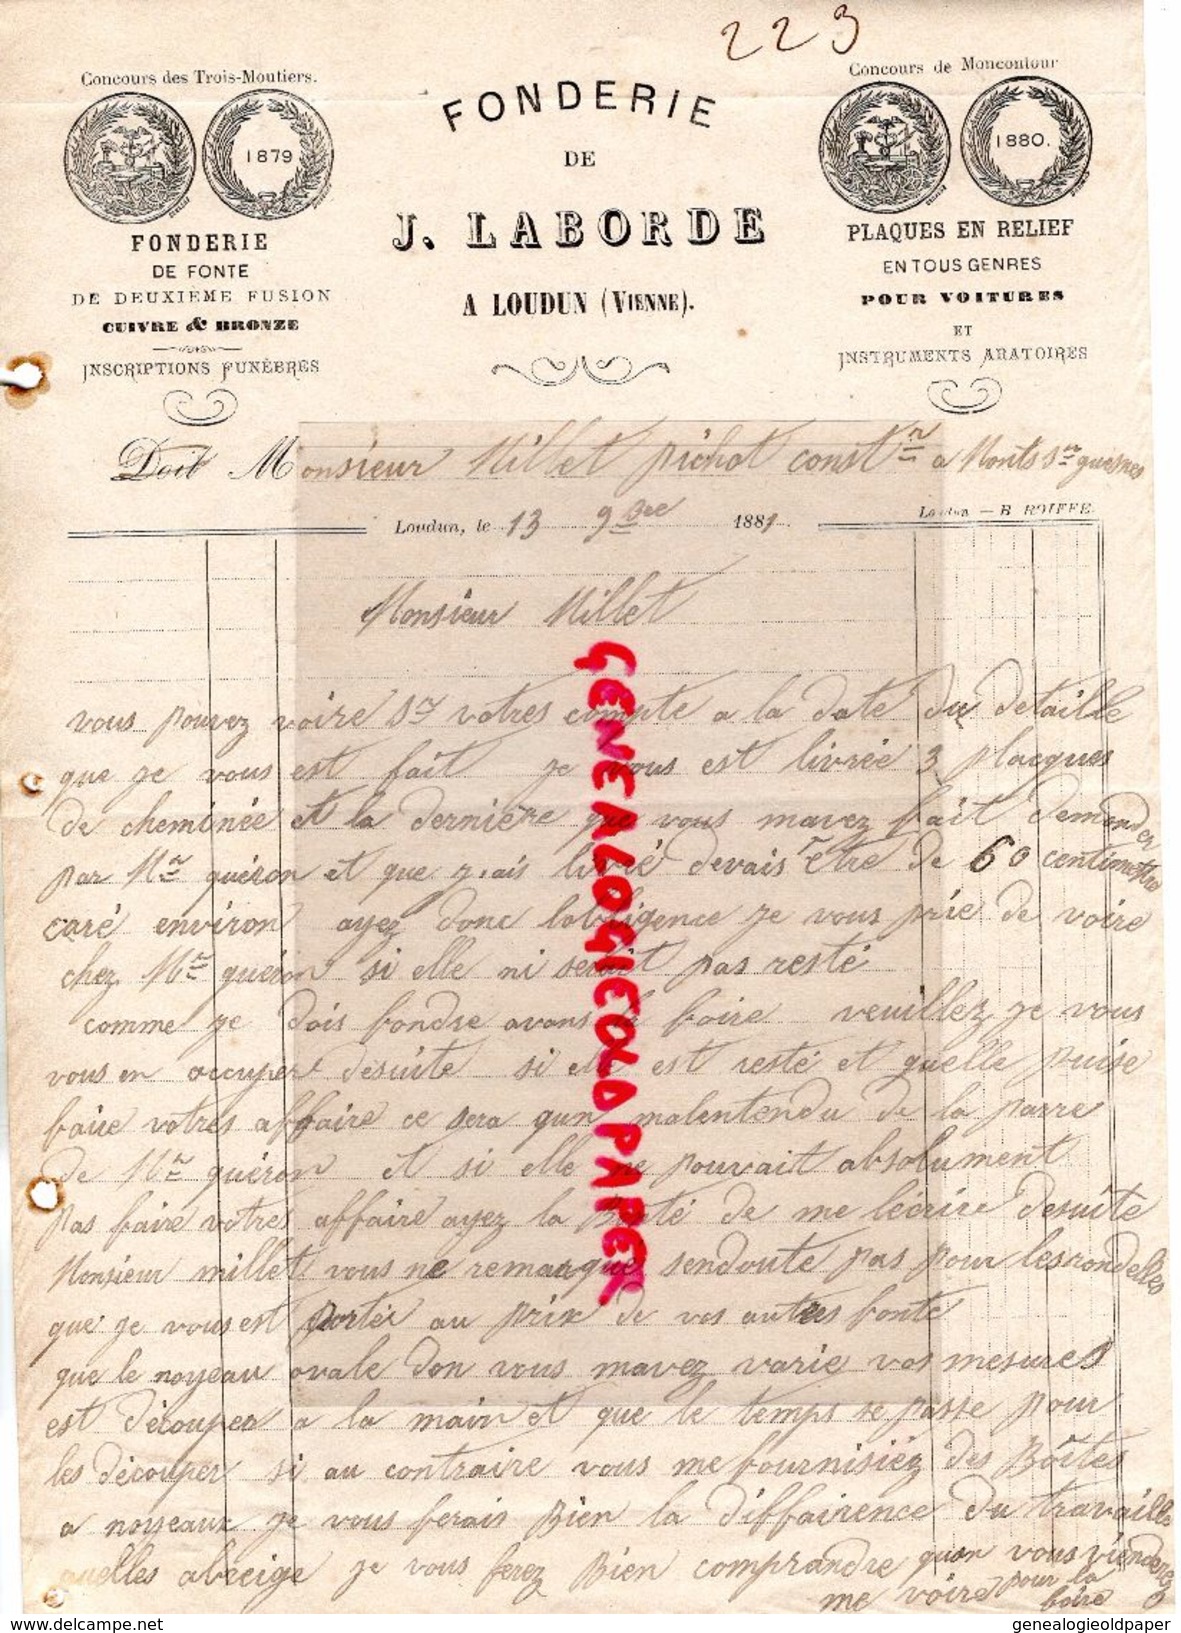 223
Concours des Trois-Moutiers.
1879
FONDERIE
DE FONTE
DE DEUXIEME FUSION
CUIVRE & BRONZE
INSCRIPTIONS FUNÈBRES
FONDERIE
DE
J. LABORDE
A LOUDUN (VIENNE).
Concours de Moncontour
1880.
PLAQUES EN RELIEF
EN TOUS GENRES
POUR VOITURES
ET
INSTRUMENTS ARATOIRES
Doit Monsieur Millet pichot constr a Monts sr guesnes
Loudun, le 13 9bre 1881
Loudun — B. ROIFFE.
Monsieur Millet
vous pouvez voire sr votres compte a la date du detaille
que je vous est fait je vous est livrée 3 placques
de cheminée et la derniere que vous mavez fait demander
par Mr guéron et que j.ais livré devais être de 60 centimettre
caré environ ayez donc lobbligence je vous prie de voire
chez Mr guéron si elle ni serait pas resté
comme je dois fondre avans la foire veuillez je vous
vous en occuper desuite si elle est resté et quelle puise
faire votres affaire ce sera qun malentendu de la parre
de Mr guéron et si elle ne pouvait absolument
pas faire votres affaire ayez la Bonté de me lécrire desuite
Monsieur millet vous ne remarqué sendoute pas pour les rondelles
que je vous est porter au prix de vos autres fonte
que le noyeau ovale don vous mavez varie vos mesures
est découper a la main et que le temps se passe pour
les découper si au contraire vous me fournisiéz des Bôites
a noyeaux je vous ferais Bien la diffairence du travaille
quelles abreige je vous ferez Bien comprandre quan vous viendrez
me voire pour la
foire
GENEALOGIEOLDPAPER
genealogieoldpaper